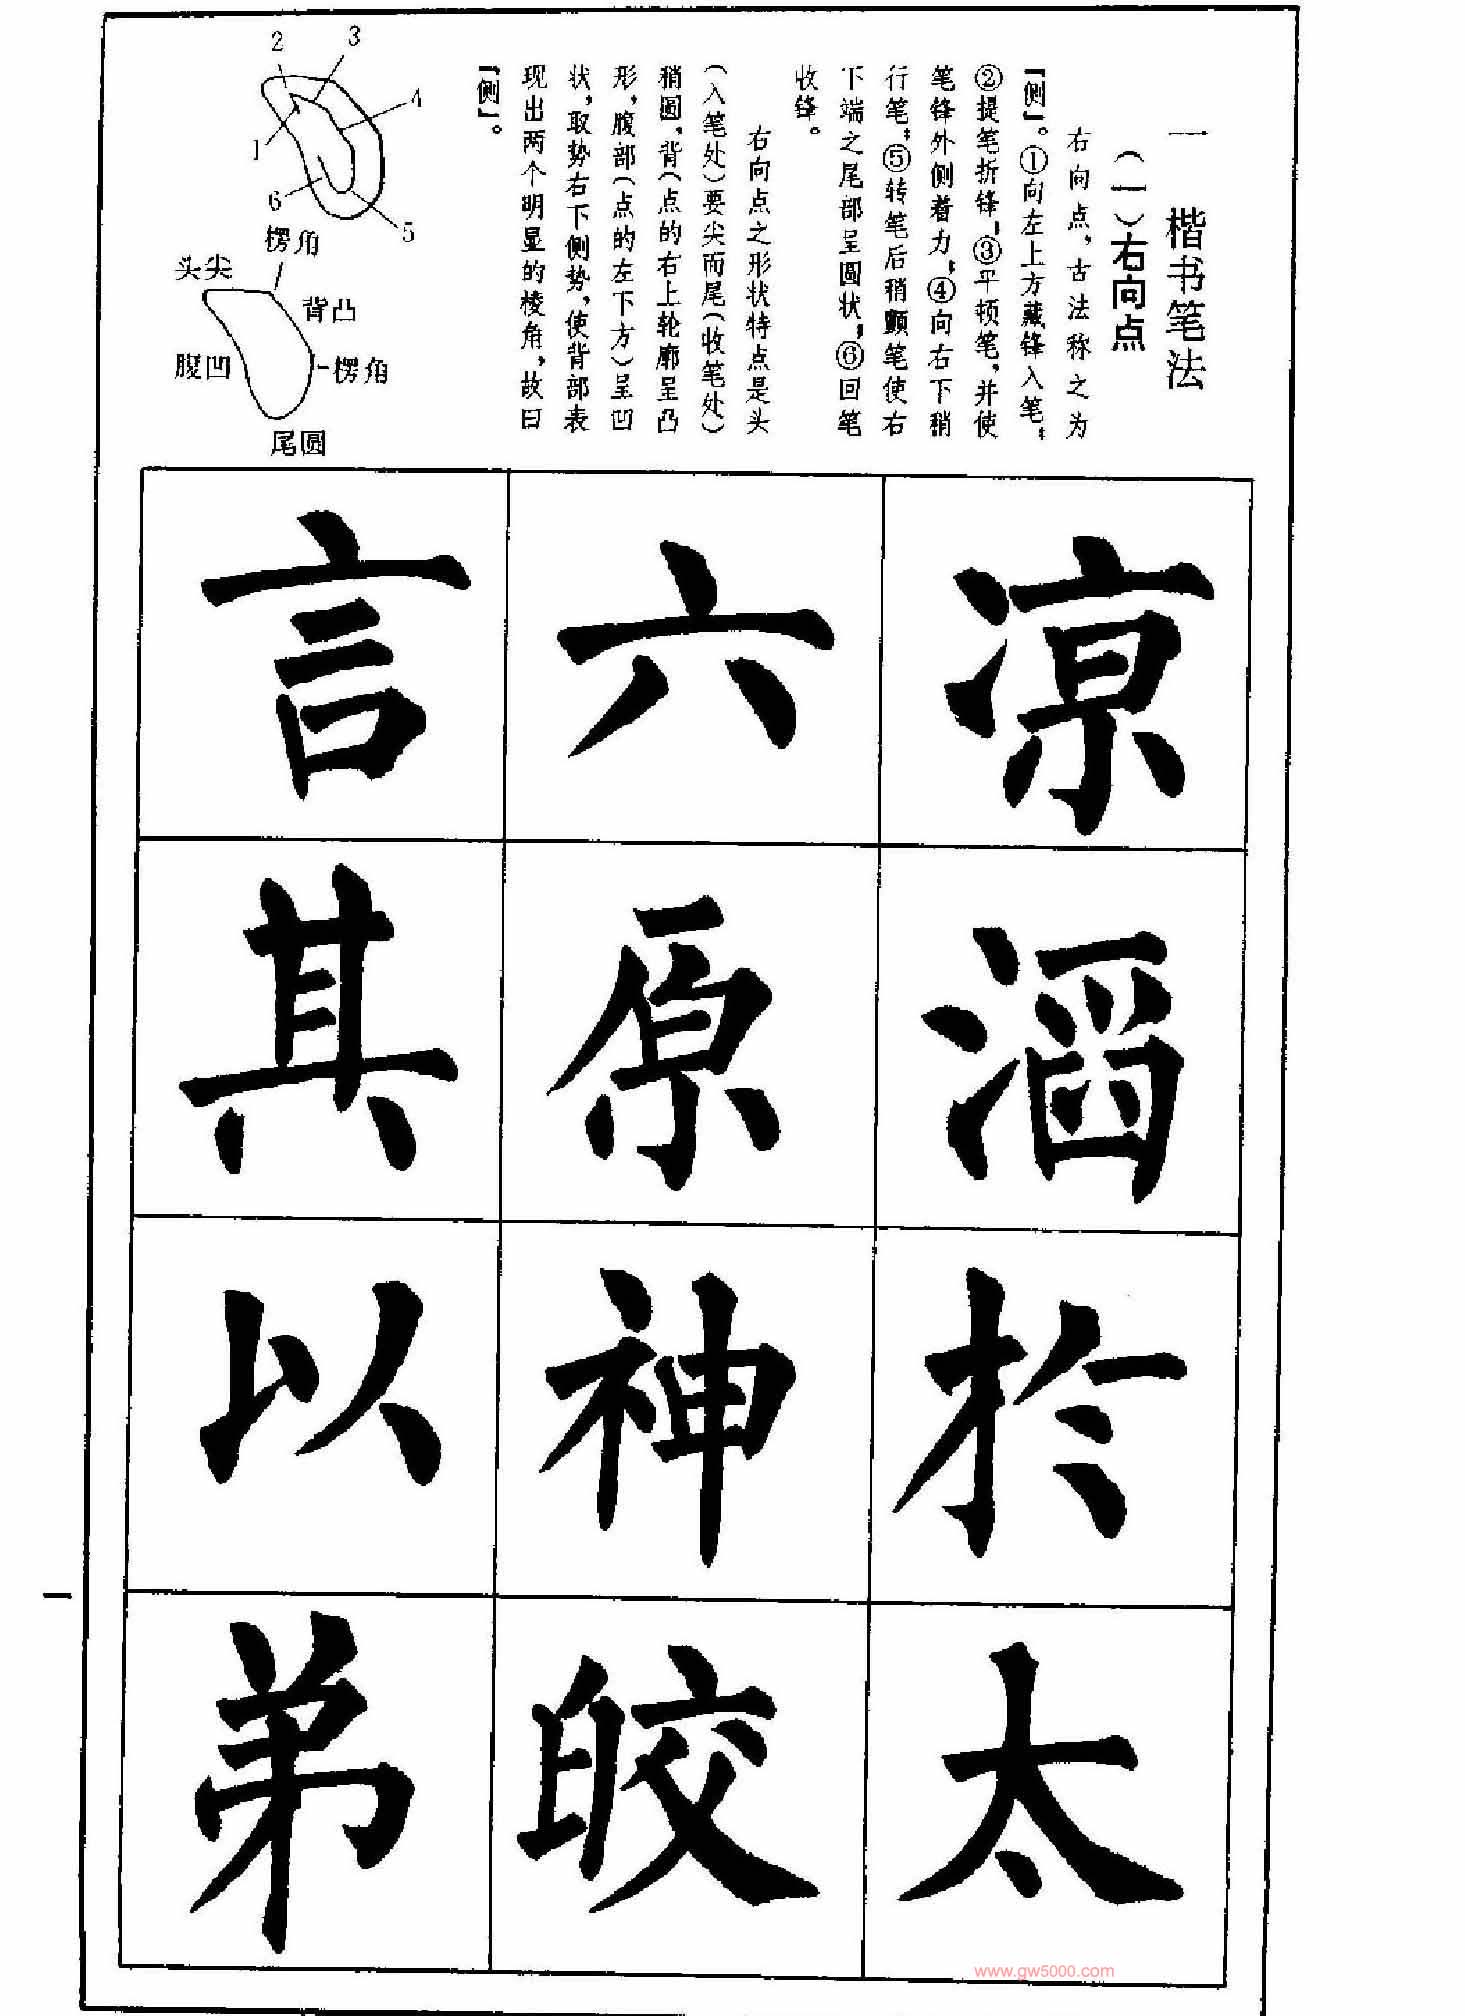 一 楷书笔法
（一）右向点
右向点，古法称之为
『侧』。①向左上方藏锋入笔；
②提笔折锋；③平顿笔，并使
笔锋外侧着力；④向右下稍
行笔；⑤转笔后稍颤笔使右
下端之尾部呈圆状；⑥回笔
收锋。
右向点之形状特点是头
（入笔处）要尖而尾（收笔处）
稍圆，背（点的右上轮廓呈凸
形，腹部（点的左下方）呈凹
状，取势右下侧势，使背部表
现出两个明显的棱角，故曰
『侧』。
2
3
4
1
6
5
楞角
头尖
背凸
腹凹
楞角
尾圆
凉
滔
於
太
六
原
神
皎
言
其
以
弟
一
www.gw5000.com